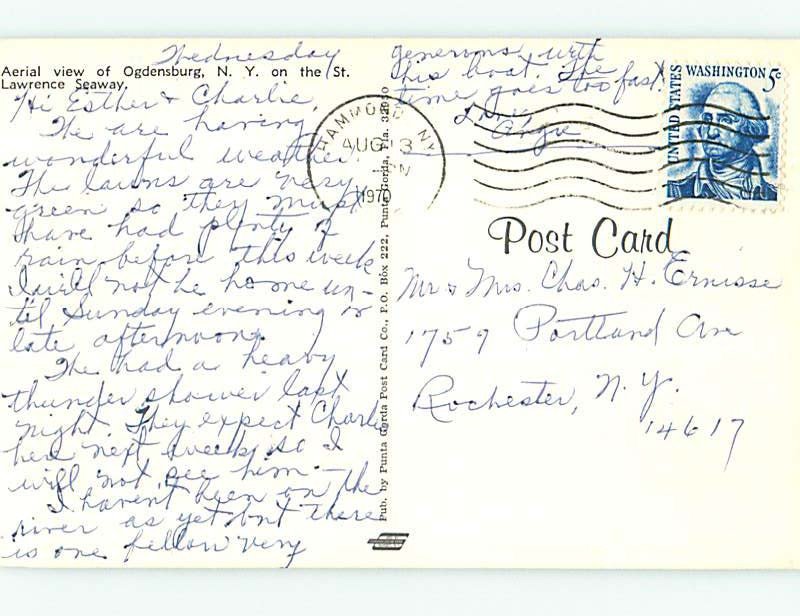 Aerial view of Ogdensburg, N. Y. on the St.
Lawrence Seaway.
Wednesday
Hi Esther & Charlie,
The are having
wonderful weather.
The lawns are very
green so they must
have had plenty of
rain before this week
I will not be home un-
til Sunday evening or
late afternoon.
The had a heavy
thunder shower last
night. They expect Charlie
here next week so I
will not see him -
I havent been on the
river as yet but there
is one fellow very
generous with
his boat. The
time goes too fast.
Love,
Angie
Pub. by Punta Gorda Post Card Co., P.O. Box 222, Punta Gorda, Fla. 33950
HAMMOND NY
AUG 13
1970
UNITED STATES
WASHINGTON 5c
Post Card
Mr & Mrs. Chas. H. Ernisse
1759 Portland Ave
Rochester, N. Y.
14617